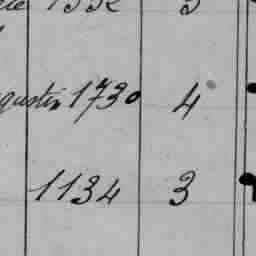 1332 3
gustin 1730 4
1134 3